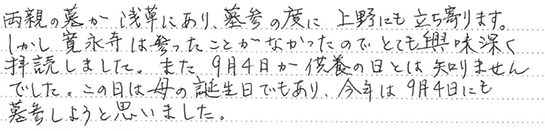 両親の墓が浅草にあり、墓参の度に上野にも立ち寄ります。
しかし寛永寺は登ったことがなかったのでとても興味深く
拝読しました。また9月4日が供養の日とは知りません
でした。この日は母の誕生日でもあり、今年は9月4日にも
墓参しようと思いました。